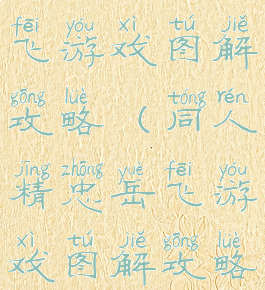 fēi yóu xì tú jiě
飞游戏图解
gōng lüè tóng rén
攻略（同人
jīng zhōng yuè fēi yóu
精忠岳飞游
xì tú jiě gōng lüè
戏图解攻略